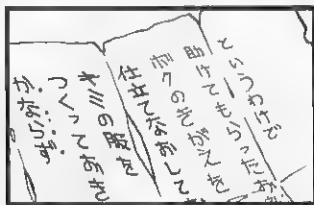 というわけで
助けてもらった
ボクのきがえを
仕立てなおして
キミの服を
つくっておき
かならず